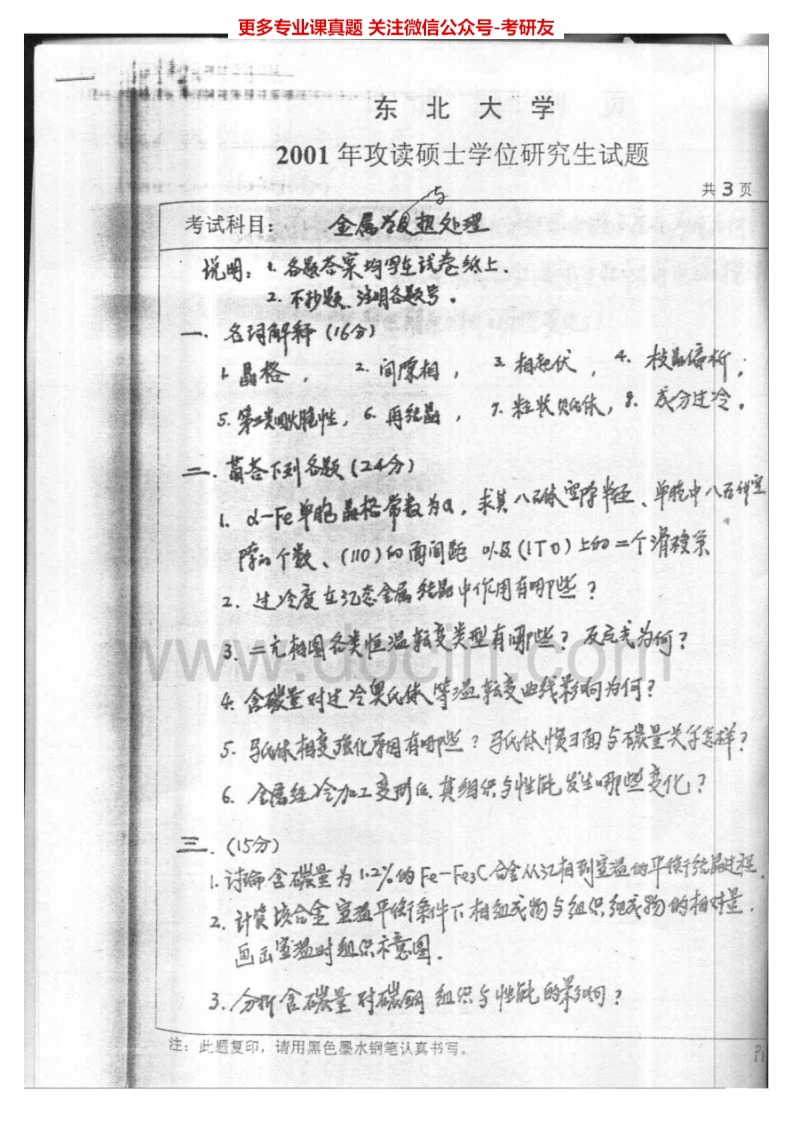 更多专业课真题 关注微信公众号-考研友
东 北 大 学
2001 年攻读硕士学位研究生试题
共 3 页
与
考试科目: 金属学及热处理
说明: 1. 各题答案均写在试卷纸上.
2. 不抄题、注明各题号。
一、名词解释 (16分)
1. 晶格, 2. 间隙相, 3. 相起伏, 4. 枝晶偏析;
5. 第二类回火脆性, 6. 再结晶, 7. 粒状贝氏体, 8. 成分过冷。
二、简答下列各题 (24分)
1. α-Fe单胞晶格常数为a, 求其八面体空隙半径、单胞中八面体空
隙的个数、(110)的面间距 以及(1T0)上的二个滑移系
2. 过冷度在液态金属结晶中作用有哪些?
3. 二元相图各类恒温转变类型有哪些? 反应式为何?
4. 含碳量对过冷奥氏体等温转变曲线影响为何?
5. 马氏体相变强化原因有哪些? 马氏体惯习面与碳量关系怎样?
6. 金属经冷加工变形后, 其组织与性能发生哪些变化?
三. (15分)
1. 讨论含碳量为1.2%的Fe-Fe3C合金从液相到室温的平衡结晶过程.
2. 计算该合金室温平衡条件下相组成物与组织组成物的相对量.
画出室温时组织示意图.
3. 分析含碳量对碳钢组织与性能的影响?
注: 此题复印, 请用黑色墨水钢笔认真书写。
P1
www.docin.com